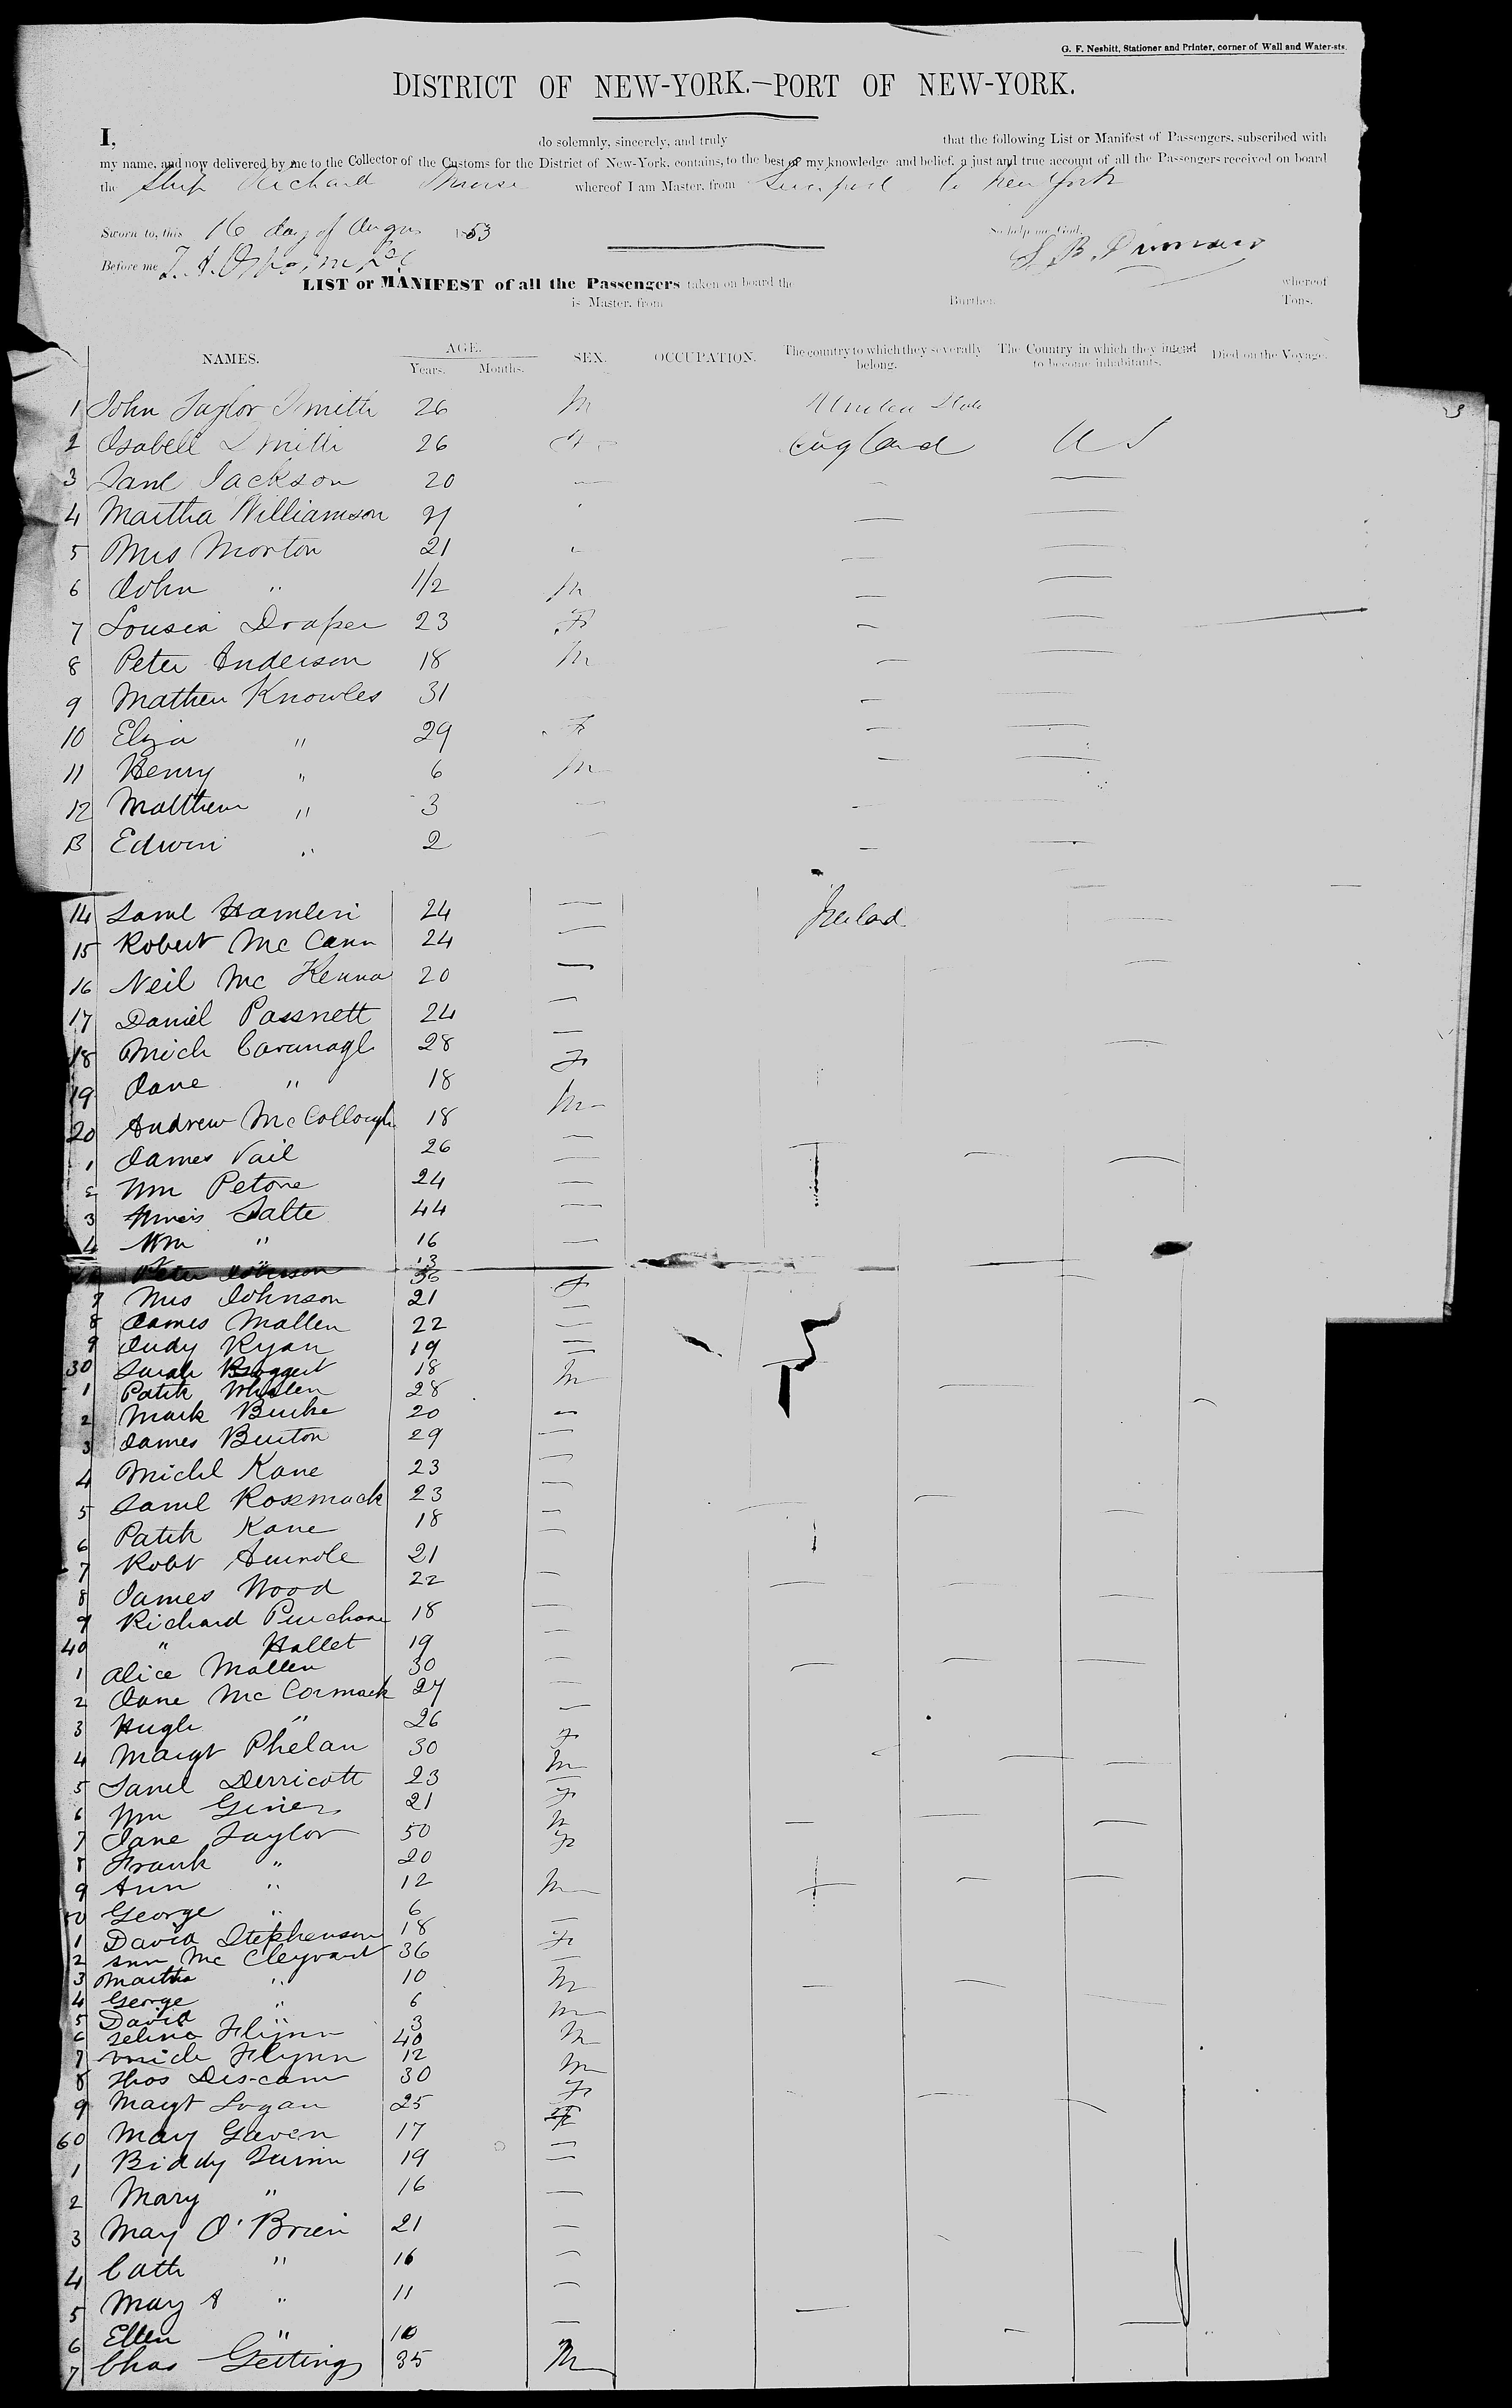 G. F. Nesbitt, Stationer and Printer, corner of Wall and Water-sts.
DISTRICT OF NEW-YORK.—PORT OF NEW-YORK.
I, do solemnly, sincerely, and truly that the following List or Manifest of Passengers, subscribed with
my name, and now delivered by me to the Collector of the Customs for the District of New-York, contains, to the best of my knowledge and belief, a just and true account of all the Passengers received on board
the Ship Richard Morse whereof I am Master, from Liverpool to New York
Sworn to, this 16 day of Augus 1853 So help me God,
Before me S. B. Dinsmore
LIST or MANIFEST of all the Passengers taken on board the whereof
is Master, from Burthen Tons.
NAMES. AGE. Years. Months. SEX. OCCUPATION. The country to which they severally belong. The Country in which they intend to become inhabitants. Died on the Voyage.
1 John Taylor Smith 26 M United State
2 Isabell Smith 26 F England U S
3 Jane Jackson 20 —
4 Martha Williamson 21
5 Mrs Morton 21 "
6 John " 1/2 M
7 Lousia Draper 23 F
8 Peter Anderson 18 M
9 Mathew Knowles 31
10 Eliza " 29 F
11 Henry " 6 M
12 Matthew " 3 —
13 Edwin " 2 —
14 Saml Hamlin 24 — Ireland
15 Robert McCann 24 —
16 Neil McKenna 20 —
17 Daniel Passnett 24 —
18 Mich Cavanagh 28 —
19 Jane " 18 F
20 Andrew McCollough 18 M
1 James Vail 26 —
2 Wm Petone 24 —
3 Salte 44 —
4 Wm " 16 —
" 13
Peter Johnson 36
7 Mrs Johnson 21 F
8 James Mallen 22 —
9 Judy Ryan 19 —
30 Sarah 18 —
1 Patk Whalen 28 M
2 Mark Burke 20 —
3 James Burton 29 —
4 Michl Kane 23 —
5 Saml Rossmack 23 —
6 Patk Kane 18 —
7 Robt 21 —
8 James Wood 22 —
9 Richard 18 —
40 " Hallet 19 —
1 Alice Mallen 30 —
2 Jane McCormack 27 —
3 Hugh " 26 —
4 Margt Phelan 30 F
5 Saml Derricott 23 M
6 Wm 21
7 Jane Taylor 50 F
8 Frank " 20 M
9 Ann " 12 F
50 George " 6 M
1 David Stephenson 18 —
2 Ann Mc 36 F
3 Martha " 10 —
4 George " 6 M
5 David " 3 M
6 Selina Flynn 40
7 Mich Flynn 12 M
8 Thos 30 M
9 Margt Logan 25 F
60 Mary Gaven 17 F
1 Biddy Quinn 19 —
2 Mary " 16 —
3 Mary O'Brien 21 —
4 Cath " 16 —
5 Mary A " 11 —
6 Ellen " 10 —
7 Chas Gettings 35 M